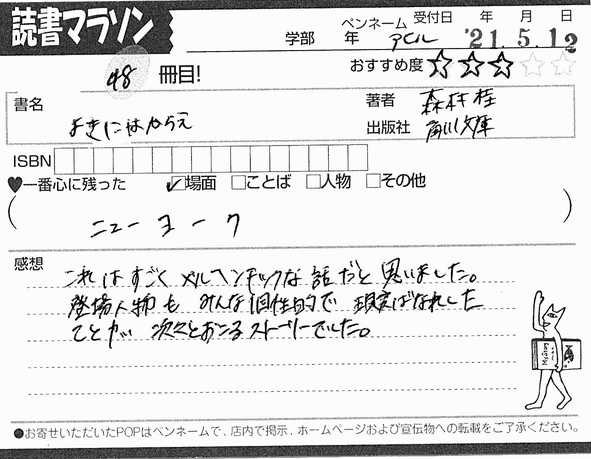 読書マラソン
学部 年 ペンネーム アピル 受付日 年 月 日 '21.5.12
48 冊目!
おすすめ度 ★★★☆☆
書名 よきにはからえ
著者 森村桂
出版社 角川文庫
ISBN
♥一番心に残った ☑場面 □ことば □人物 □その他
( ニューヨーク )
感想
これはすごくメルヘンチックな話だと思いました。
登場人物もみんな個性的で現実ばなれした
ことが次々とおこるストーリーでした。
●お寄せいただいたPOPはペンネームで、店内で掲示、ホームページおよび宣伝物への転載をご了承ください。